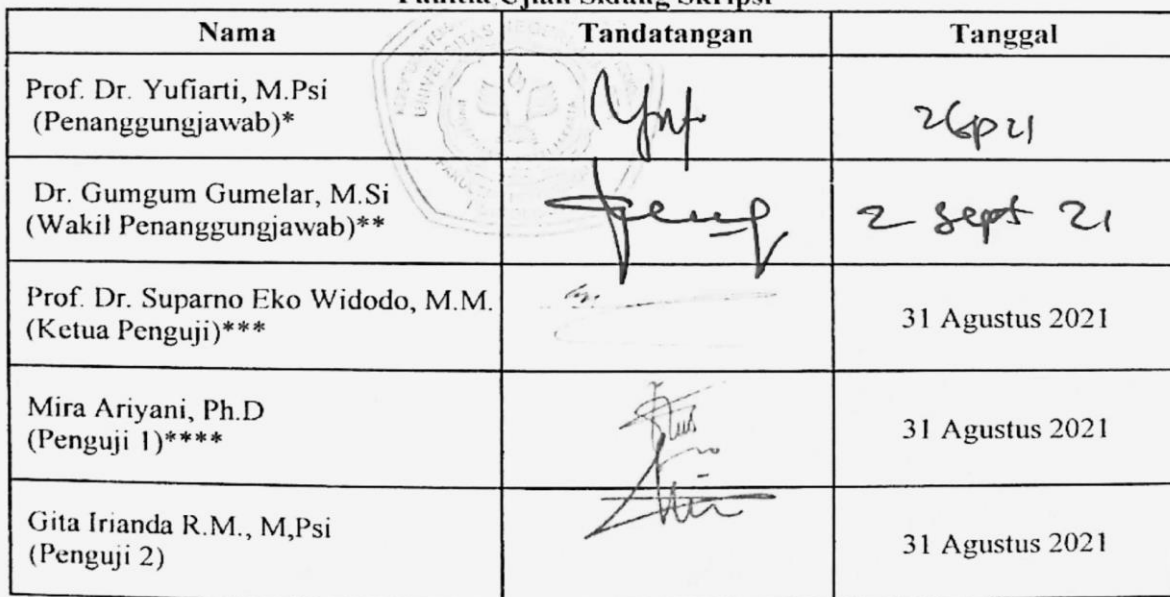 Panitia Ujian Sidang Skripsi
Nama Tandatangan Tanggal
Prof. Dr. Yufiarti, M.Psi
(Penanggungjawab)*
Dr. Gumgum Gumelar, M.Si
(Wakil Penanggungjawab)**
2 Sept 21
Prof. Dr. Suparno Eko Widodo, M.M.
(Ketua Penguji)***
31 Agustus 2021
Mira Ariyani, Ph.D
(Penguji 1)****
31 Agustus 2021
Gita Irianda R.M., M,Psi
(Penguji 2)
31 Agustus 2021